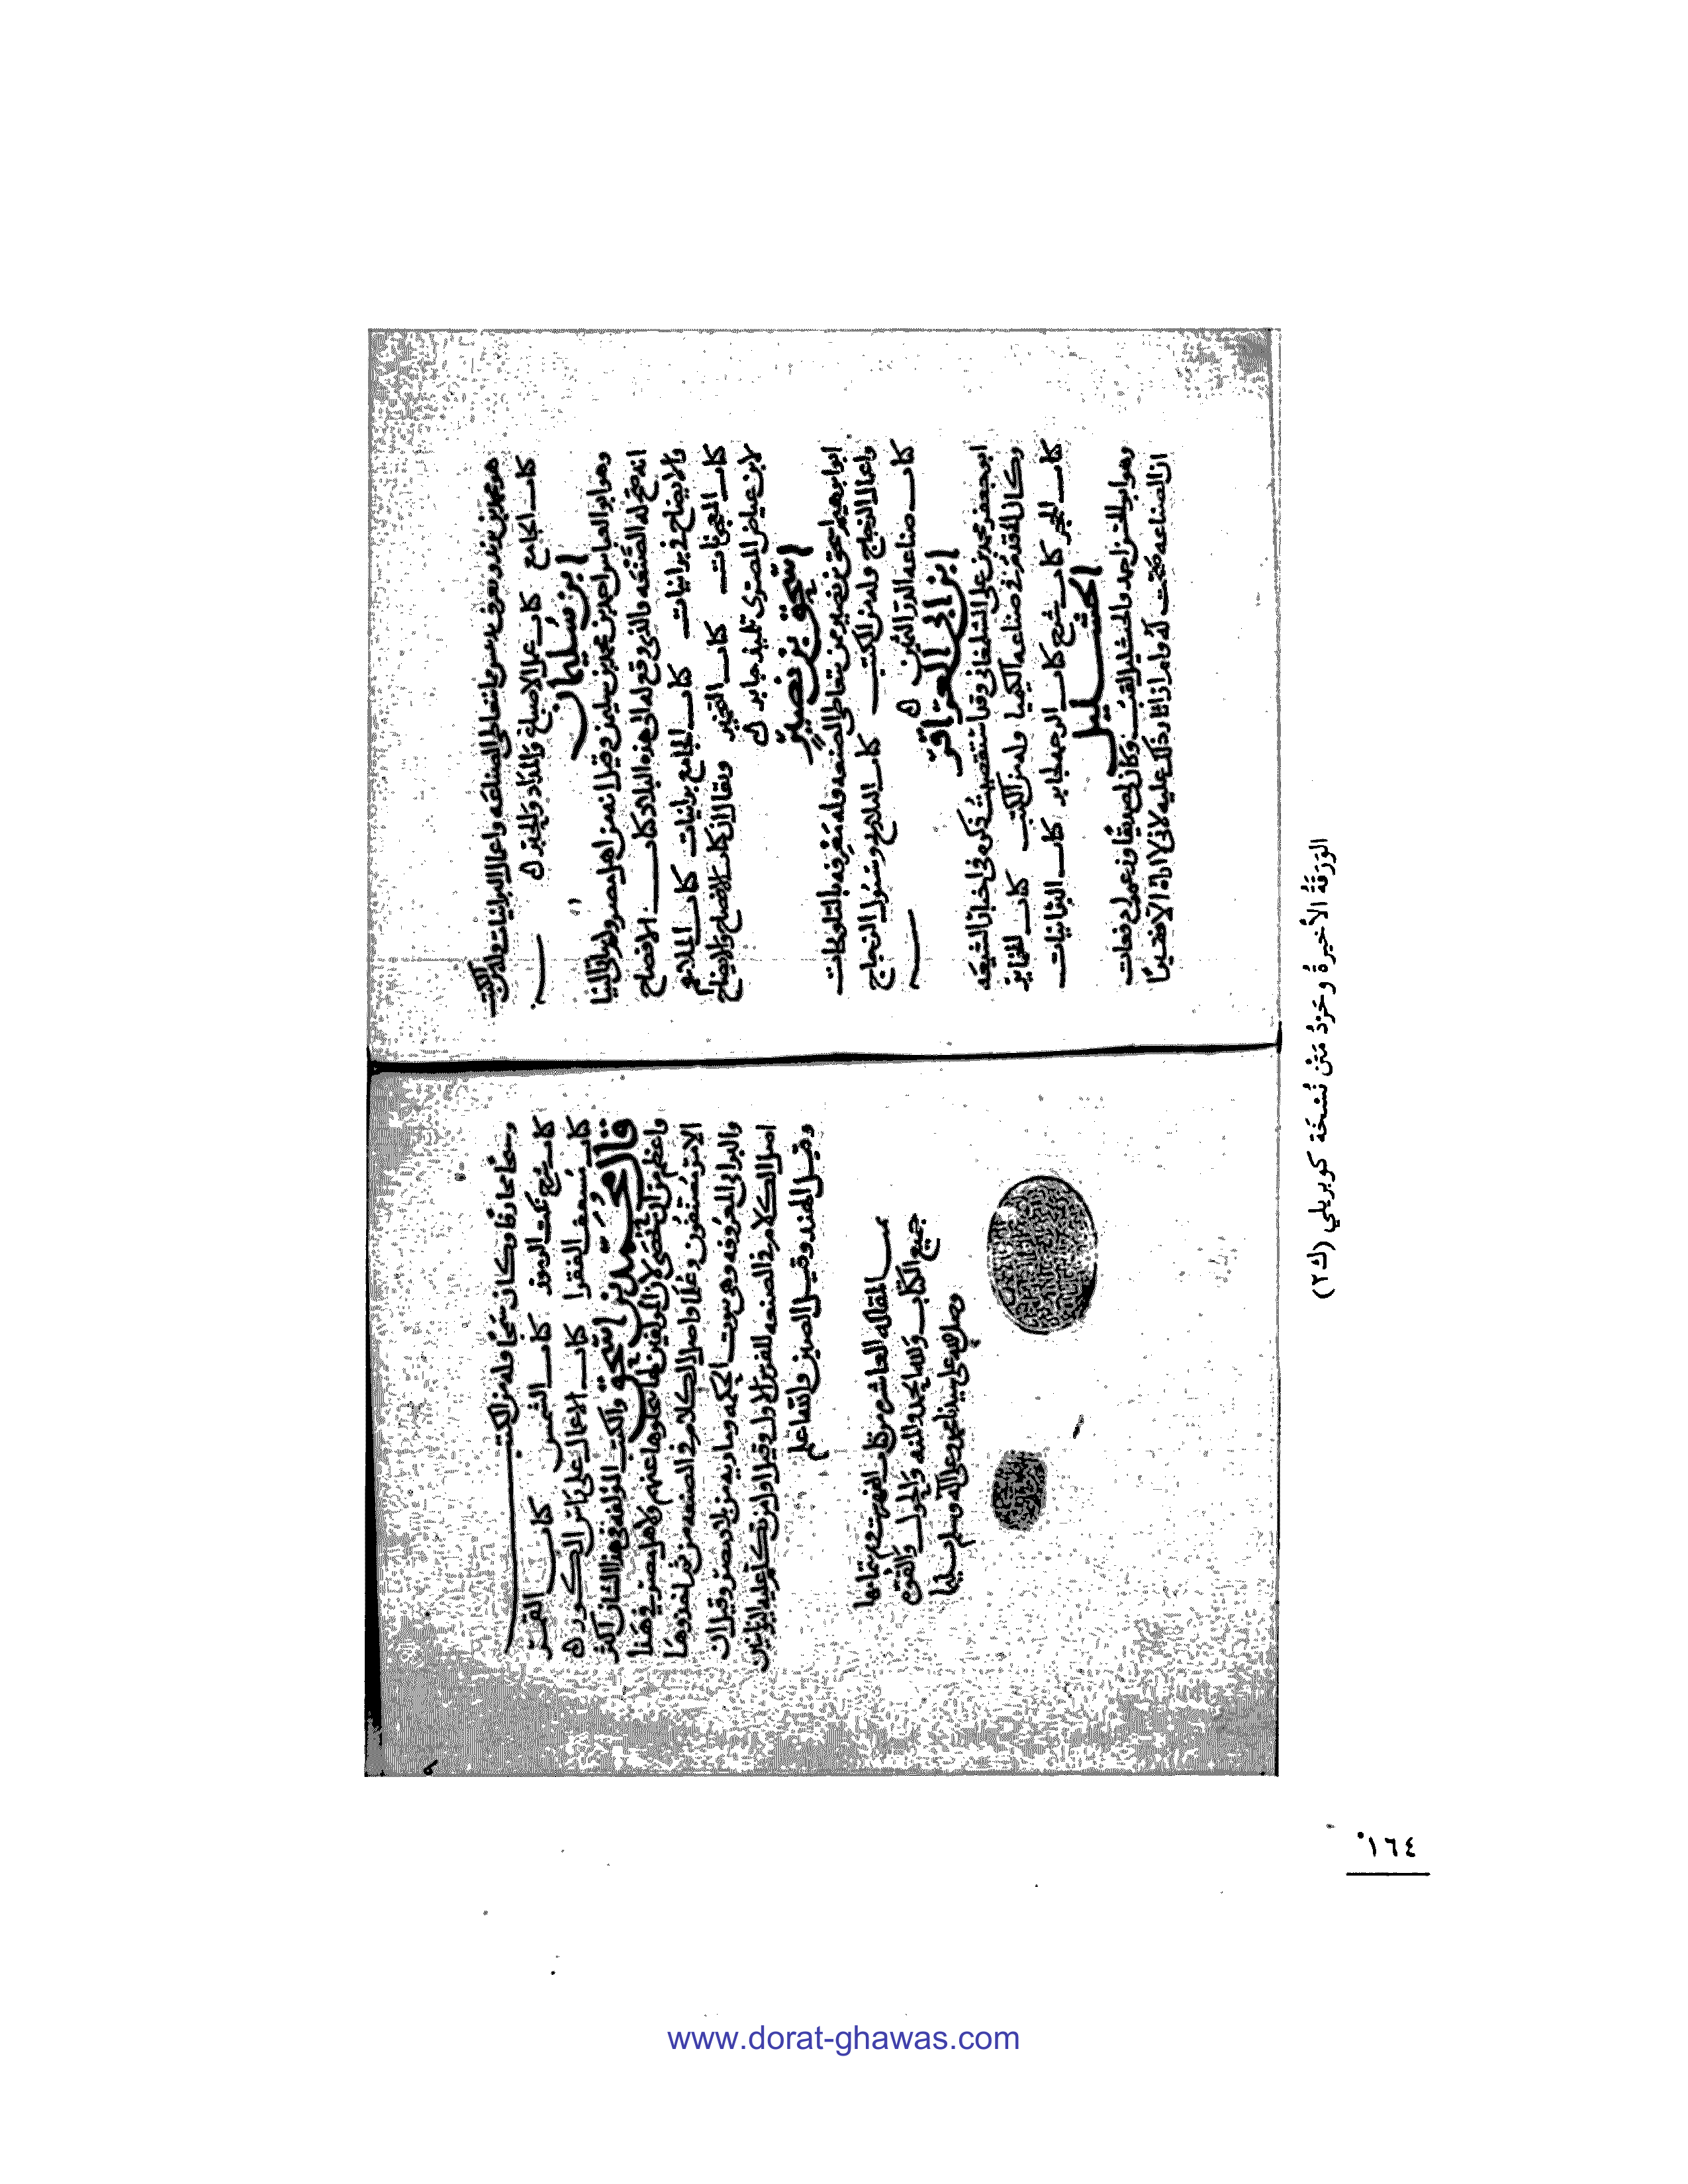 هو محمد بن يزيد يعرف بدبيس ممن يتعاطى الصناعه واعمال البرانيات وله من الكتب
كتاب الجامع كتاب عمل الاصباغ والمداد والحبر
ابن سليمان
وهو ابو العباس احمد بن محمد بن سليمن وقيل انه من اهل مصر ولم يقع الينا
انه صح له الصنعه والذي وقع له الى هذه البلاد كتاب الافصاح
والايضاح في برانيات كتاب الجامع برانيات كتاب الملاغم
كتاب المعجونات كتاب التخمير ويقال ان كتاب الافصاح والايضاح
لابن عياض المصري تلميذ جابر
اسحق بن نصير
ابو ابرهيم اسحق بن نصير ممن يتعاطى الصنعه وله معرفه بالتلويحات
واعمال الزجاج وله من الكتب كتاب التلاويح وسيول الزجاج
كتاب صناعه الدر الثمين
ابن ابي العزاقر
ابو جعفر محمد بن علي الشلمغاني وقد استقصيت ذكره في اخبار الشيعه
وكان له قدم في صناعه الكيميا وله من الكتب كتاب الخماير
كتاب الحجر كتاب شرح كتاب الرحمه لجابر كتاب البرانيات
الخنشليل
وهو ابو الحسن احمد والخنشليل لقب وكان لي صديقا وزعم لي دفعات
ان الصناعه صحت له ولم ار اثار ذلك عليه لاني لا اراه الا فقيرا
وسخا محارفا وكان شيخا وله من الكتب
كتاب شرح نكت الرموز كتاب الشمس كتاب القمر
كتاب مسعف الفقرا كتاب الاعمال على راس الكور
قال محمد بن اسحق والكتب المؤلفه في هذا الشان اكثر
واعظم من ان تحصى لان المولفين لها نحلوها عنهم ولاهل مصر في هذا
الامر مصنفون وعلما واصل الكلام في الصنعه من ثم اخذ وها
والبرابي المعروفه وهي بيوت الحكمه وماريه من بلاد مصر وقيل ان
اصل الكلام في الصنعه للفرس الاول وقيل اول من تكلم عليه اليونانيين
وقيل الهند وقيل الصين والله اعلم
تمت المقاله العاشره من كتاب الفهرست وتم بتمامها
جميع الكتاب ولله الحمد والمنه والحول والقوه
وصلى الله على سيدنا محمد وعلى آله وسلم تسليما
الوَرَقَةُ الأخيرةُ وحَرْدُ مَتْن نُسْخَة كوبريلي (ك٢)
١٦٤
www.dorat-ghawas.com